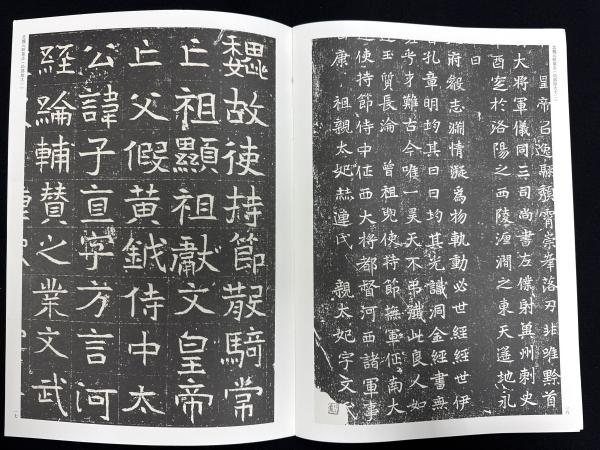 皇帝召逸翮頹霄崇峯落刃非唯黔首
大將軍儀同三司尚書左僕射冀州刺史
酉窆於洛陽之西陵瀍澗之東天遥地永
曰
府殺志瀾情凝爲物軌動必世經經世伊
孔章明均其日曰均其光識洞金經書無
才難古今唯一昊天不弔殲此良人如
質長淪 曾祖兜使持節撫軍征南大
使持節侍中征西大将都督河西諸軍事
康 祖親太妃赫連氏 親太妃宇文氏
魏故使持節散騎常
亡祖顯祖獻文皇帝
亡父假黄鉞侍中太
公諱子直字方言河
經綸輔贊之業文武